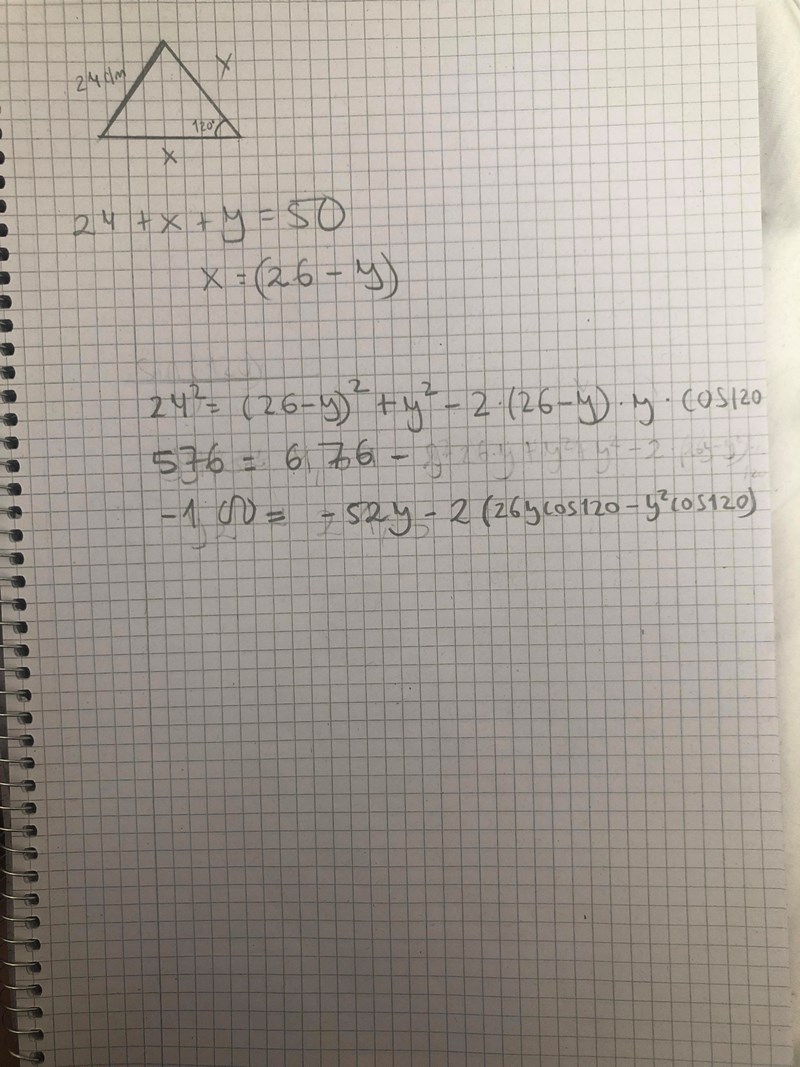 24dm
x
120°
x
24 + x + y = 50
x = (26 - y)
24² = (26-y)² + y² - 2·(26-y)·y·cos120
576 = 676 -
-100 = -52y - 2(26ycos120 - y²cos120)